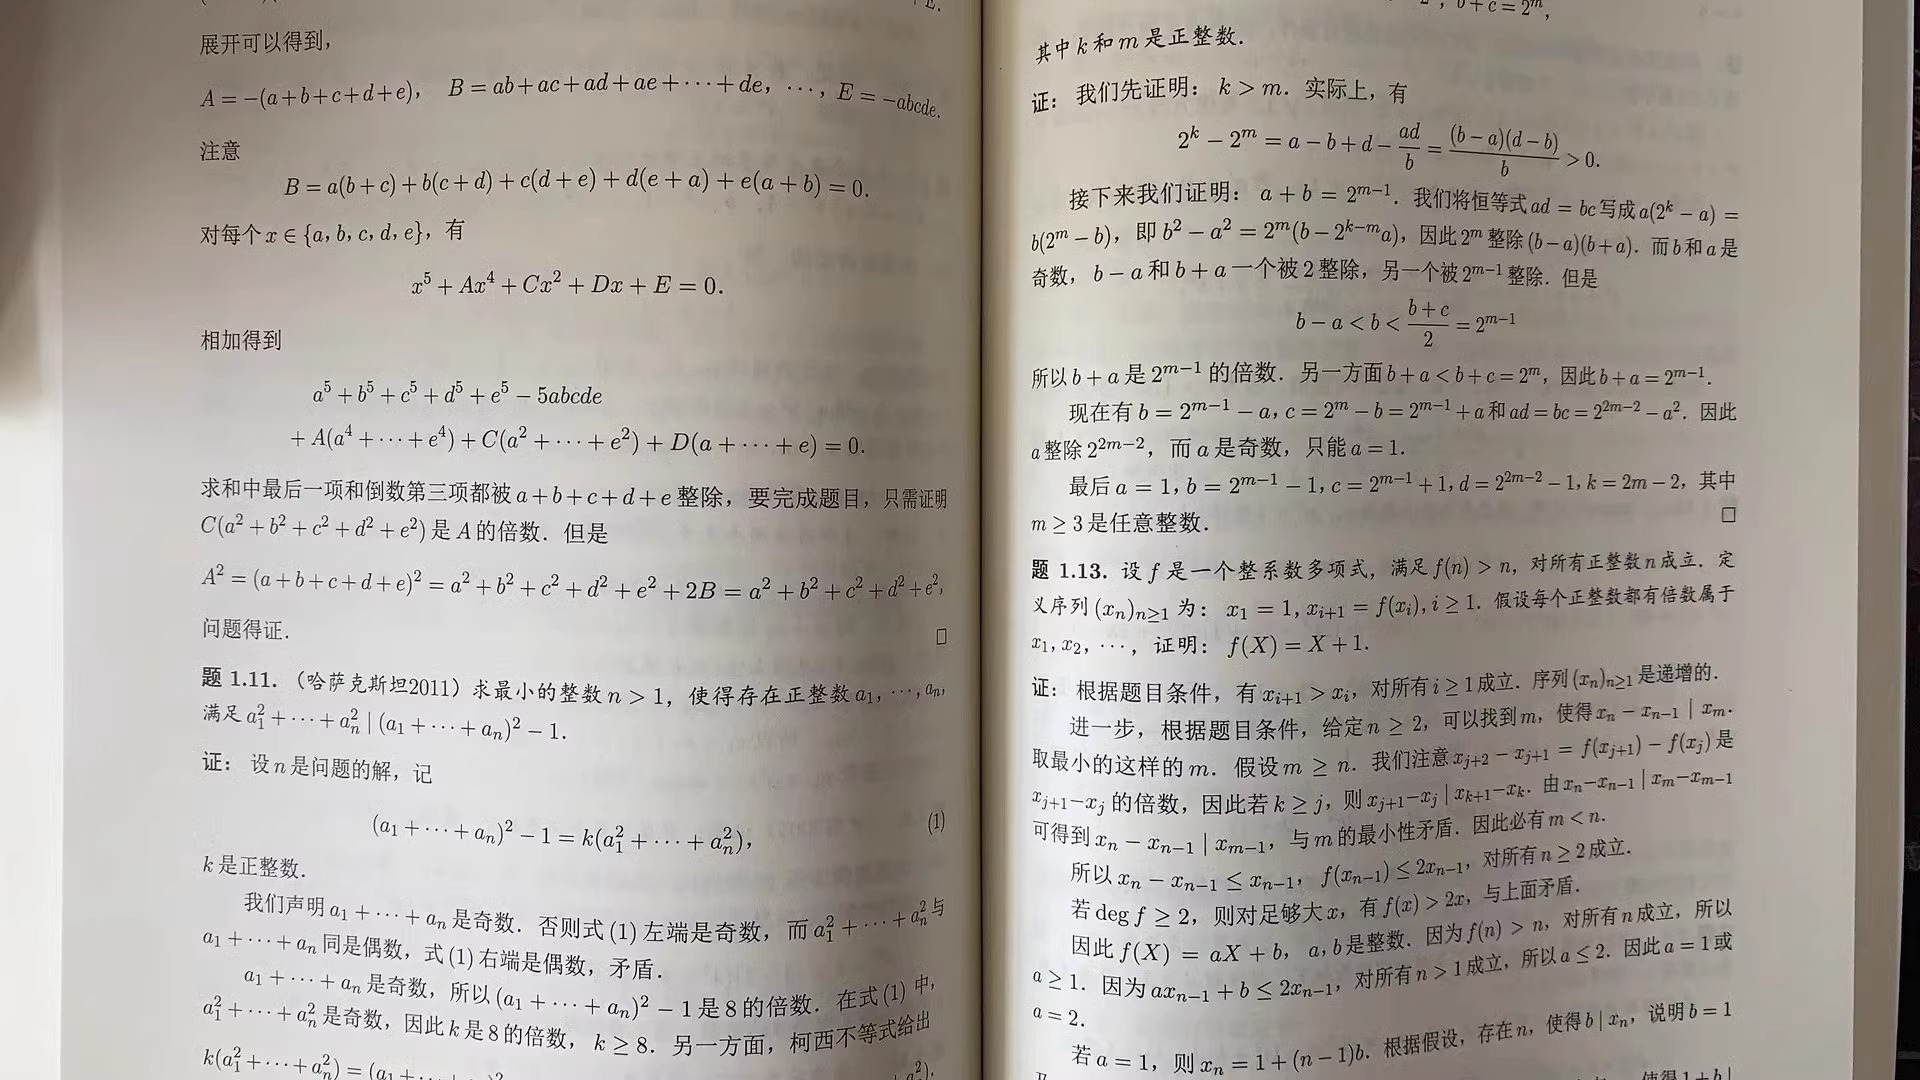 展开可以得到，
A = −(a+b+c+d+e)， B = ab+ac+ad+ae+⋯+de，⋯，E = −abcde.
注意
B = a(b+c)+b(c+d)+c(d+e)+d(e+a)+e(a+b) = 0.
对每个 x ∈ {a, b, c, d, e}，有
x⁵ + Ax⁴ + Cx² + Dx + E = 0.
相加得到
a⁵ + b⁵ + c⁵ + d⁵ + e⁵ − 5abcde
+ A(a⁴ + ⋯ + e⁴) + C(a² + ⋯ + e²) + D(a + ⋯ + e) = 0.
求和中最后一项和倒数第三项都被 a+b+c+d+e 整除，要完成题目，只需证明
C(a² + b² + c² + d² + e²) 是 A 的倍数. 但是
A² = (a+b+c+d+e)² = a² + b² + c² + d² + e² + 2B = a² + b² + c² + d² + e²,
问题得证. □
题 1.11.（哈萨克斯坦2011）求最小的整数 n > 1，使得存在正整数 a₁, ⋯, aₙ,
满足 a₁² + ⋯ + aₙ² | (a₁ + ⋯ + aₙ)² − 1.
证： 设 n 是问题的解，记
(a₁ + ⋯ + aₙ)² − 1 = k(a₁² + ⋯ + aₙ²), (1)
k 是正整数.
我们声明 a₁ + ⋯ + aₙ 是奇数. 否则式 (1) 左端是奇数，而 a₁² + ⋯ + aₙ² 与
a₁ + ⋯ + aₙ 同是偶数，式 (1) 右端是偶数，矛盾.
a₁ + ⋯ + aₙ 是奇数，所以 (a₁ + ⋯ + aₙ)² − 1 是 8 的倍数. 在式 (1) 中，
a₁² + ⋯ + aₙ² 是奇数，因此 k 是 8 的倍数，k ≥ 8. 另一方面，柯西不等式给出
k(a₁² + ⋯ + aₙ²) = (a₁ + ⋯
b + c = 2ᵐ,
其中 k 和 m 是正整数.
证： 我们先证明： k > m. 实际上，有
2ᵏ − 2ᵐ = a − b + d − ad/b = (b − a)(d − b)/b > 0.
接下来我们证明： a + b = 2ᵐ⁻¹. 我们将恒等式 ad = bc 写成 a(2ᵏ − a) =
b(2ᵐ − b)，即 b² − a² = 2ᵐ(b − 2ᵏ⁻ᵐa)，因此 2ᵐ 整除 (b − a)(b + a). 而 b 和 a 是
奇数，b − a 和 b + a 一个被 2 整除，另一个被 2ᵐ⁻¹ 整除. 但是
b − a < b < (b + c)/2 = 2ᵐ⁻¹
所以 b + a 是 2ᵐ⁻¹ 的倍数. 另一方面 b + a < b + c = 2ᵐ，因此 b + a = 2ᵐ⁻¹.
现在有 b = 2ᵐ⁻¹ − a, c = 2ᵐ − b = 2ᵐ⁻¹ + a 和 ad = bc = 2²ᵐ⁻² − a². 因此
a 整除 2²ᵐ⁻²，而 a 是奇数，只能 a = 1.
最后 a = 1, b = 2ᵐ⁻¹ − 1, c = 2ᵐ⁻¹ + 1, d = 2²ᵐ⁻² − 1, k = 2m − 2，其中
m ≥ 3 是任意整数. □
题 1.13. 设 f 是一个整系数多项式，满足 f(n) > n，对所有正整数 n 成立. 定
义序列 (xₙ)ₙ≥₁ 为： x₁ = 1, xᵢ₊₁ = f(xᵢ), i ≥ 1. 假设每个正整数都有倍数属于
x₁, x₂, ⋯，证明： f(X) = X + 1.
证： 根据题目条件，有 xᵢ₊₁ > xᵢ，对所有 i ≥ 1 成立. 序列 (xₙ)ₙ≥₁ 是递增的.
进一步，根据题目条件，给定 n ≥ 2，可以找到 m，使得 xₙ − xₙ₋₁ | xₘ.
取最小的这样的 m. 假设 m ≥ n. 我们注意 xⱼ₊₂ − xⱼ₊₁ = f(xⱼ₊₁) − f(xⱼ) 是
xⱼ₊₁ − xⱼ 的倍数，因此若 k ≥ j，则 xⱼ₊₁ − xⱼ | xₖ₊₁ − xₖ. 由 xₙ − xₙ₋₁ | xₘ − xₘ₋₁
可得到 xₙ − xₙ₋₁ | xₘ₋₁，与 m 的最小性矛盾. 因此必有 m < n.
所以 xₙ − xₙ₋₁ ≤ xₙ₋₁，f(xₙ₋₁) ≤ 2xₙ₋₁，对所有 n ≥ 2 成立.
若 deg f ≥ 2，则对足够大 x，有 f(x) > 2x，与上面矛盾.
因此 f(X) = aX + b， a, b 是整数. 因为 f(n) > n，对所有 n 成立，所以
a ≥ 1. 因为 axₙ₋₁ + b ≤ 2xₙ₋₁，对所有 n > 1 成立，所以 a ≤ 2. 因此 a = 1 或
a = 2.
若 a = 1，则 xₙ = 1 + (n − 1)b. 根据假设，存在 n，使得 b | xₙ，说明 b = 1